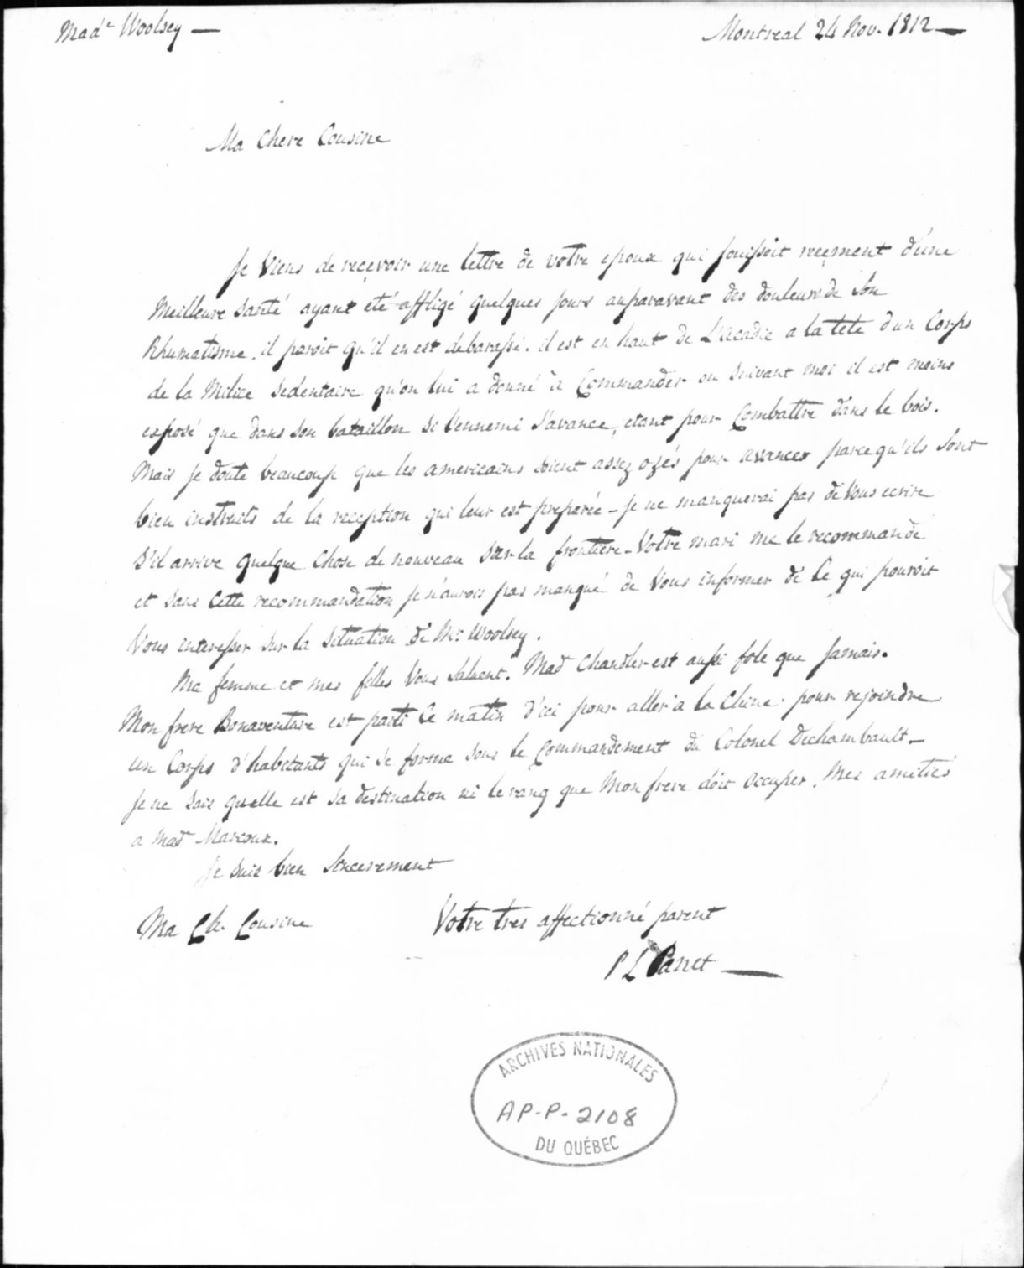 Made Woolsey —
Montreal 24 Nov. 1812 —
Ma Chere Cousine
Je Viens de reçevoir une lettre de votre epoux qui jouissoit reçement d'une
Meilleure Santé ayant été affligé quelques jours auparavant des douleurs de Son
Rhumatisme, il paroit qu'il en est debarassé. il est en haut de L'acadie a la tete d'un Corps
de la Milice Sedentaire qu'on lui a donné à Commander ou Suivant moi il est moins
exposé que dans Son bataillon Si l'ennemi S'avance, etant pour Combattre dans le bois.
Mais je doute beaucoup que les americains Soient assez ozés pour avancer parcequ'ils Sont
bien instruits de la reception qui leur est preparée – je ne manquerai pas de Vous ecrire
S'il arrive quelque Chose de nouveau Sur la frontiere – Votre mari me le recommande
et Sans Cette recommandation je n'aurois pas manqué de Vous informer de Ce qui pouroit
Vous interesser Sur la Situation de Mr Woolsey.
Ma femme et mes filles Vous Saluent. Mad Chandler est aussi fole que Jamais.
Mon frere Bonaventure est parti Ce matin d'ici pour aller a la Chine pour rejoindre
un Corps d'habitants qui Se forme Sous le Commandement du Colonel Dechambault –
Je ne Sais quelle est Sa destination ni le rang que Mon frere doit occuper. Mes amitiés
a Mad Marcoux.
Je Suis bien Sincerement
Ma Ch. Cousine
Votre tres affectionné parent
P L Panet —
ARCHIVES NATIONALES
AP-P-2108
DU QUÉBEC